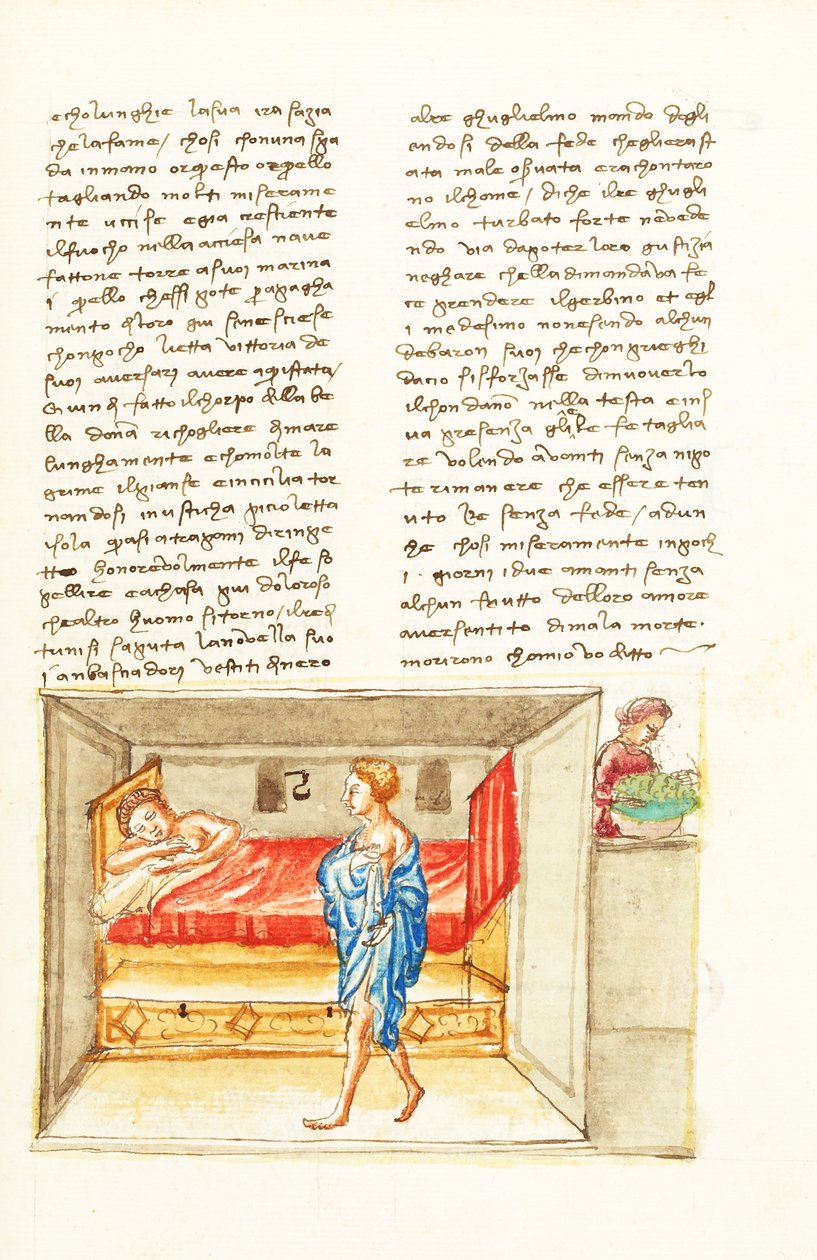 echolunghie lasua ira sazia
chelafame / chosi chonuna spa
da inmano orquesto orquello
tagliando molti miserame
nte uccise egia cresciente
ilfuocho nella acciesa nave
fattone torre asuoi marina
i quello chessi pote p apagha
mento di loro giu sene sciese
chonpocho lietta vittoria de
suoi aversari avere aquistata /
Quindi fatto ilchorpo della be
lla dona richogliere di mare
lunghamente echomolte la
grime ilpianse eincicilia tor
nandosi inusticha picioletta
isola quasi atrapani dirinpe
tto honorevolmente ilfe so
pellire eachasa piu doloroso
chealtro huomo sitorno / ilre di
tunisi saputa lanovella suo
i anbasciadori vestiti dinero
alre ghuglielmo mando degli
endosi della fede chegliera st
ata male osservata erachontaro
no ilchome / diche ilre ghugli
elmo turbato forte nevede
ndo via dapoter loro giustizia
neghare chelladimandava fe
ce prendere ilgerbino et egl
i medesimo nonesendo alchun
debaron suoi chechon prieghi
dacio sisforzasse dimuoverlo
ilchondano nella testa eins
ua presenza gliele fe taglia
re volendo avanti senza nipo
te rimanere che essere ten
uto Re senza fede / adun
che chosi miseramente inpoch
i giorni idue amanti senza
alchun frutto delloro amore
aver sentito dimala morte.
morirono chomio vo ditto